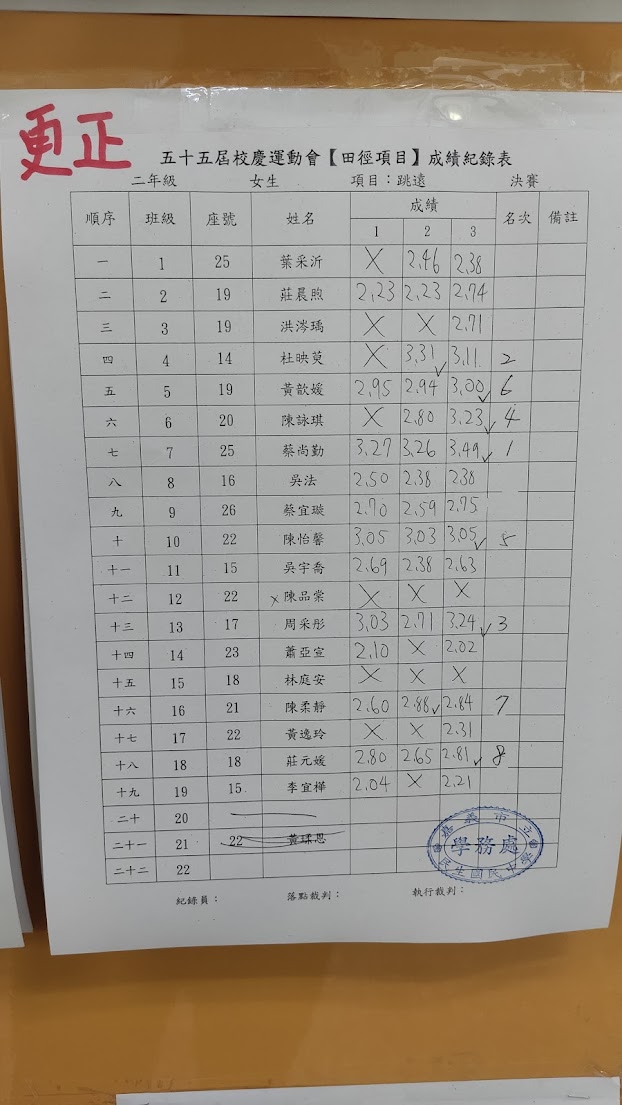 更正
五十五屆校慶運動會【田徑項目】成績紀錄表
二年級 女生 項目：跳遠 決賽
順序 班級 座號 姓名 成績 名次 備註
1 2 3
一 1 25 葉采沂 X 2.46 2.38
二 2 19 莊晨煦 2.23 2.23 2.74
三 3 19 洪涔瑀 X X 2.71
四 4 14 杜映萸 X 3.31✓ 3.11 2
五 5 19 黃歆媛 2.95 2.94 3.00✓ 6
六 6 20 陳詠琪 X 2.80 3.23✓ 4
七 7 25 蔡尚勤 3.27 3.26 3.49✓ 1
八 8 16 吳法 2.50 2.38 2.38
九 9 26 蔡宜璇 2.70 2.59 2.75
十 10 22 陳怡馨 3.05 3.03 3.05✓ 5
十一 11 15 吳宇喬 2.69 2.38 2.63
十二 12 22 x 陳品棠 X X X
十三 13 17 周采彤 3.03 2.71 3.24✓ 3
十四 14 23 蕭亞宣 2.10 X 2.02
十五 15 18 林庭安 X X X
十六 16 21 陳柔靜 2.60 2.88✓ 2.84 7
十七 17 22 黃逸玲 X X 2.31
十八 18 18 莊元媛 2.80 2.65 2.81✓ 8
十九 19 15 李宜樺 2.04 X 2.21
二十 20
二十一 21 22 黃瑈恩
二十二 22
嘉義市立
學務處
民生國民中學
紀錄員： 落點裁判： 執行裁判：